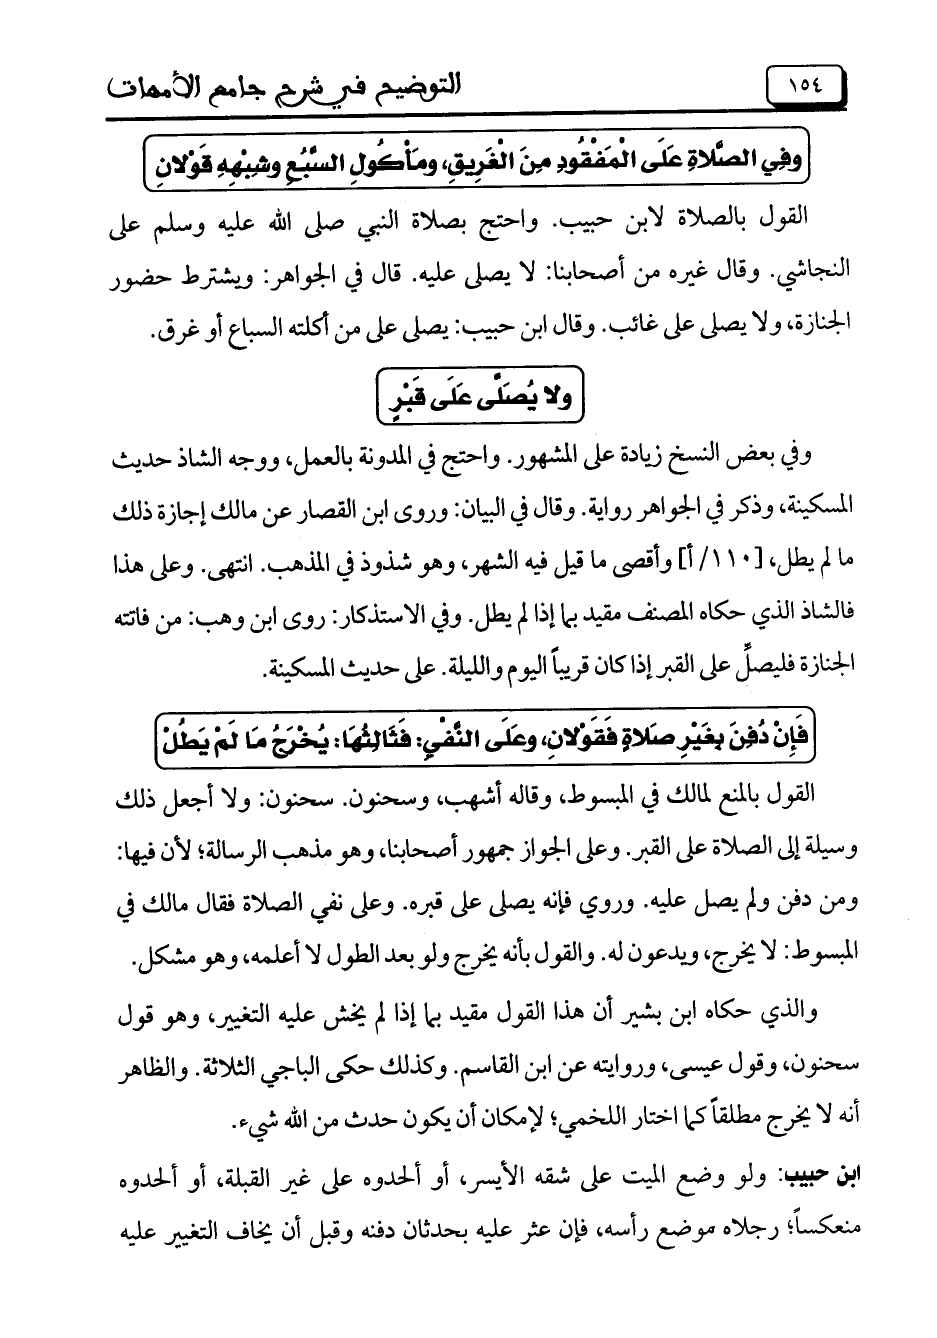 ١٥٤
التوضيح في شرح جامع الأمهات
وَفِي الصَّلاةِ عَلَى الْمَفْقُودِ مِنَ الْغَرِيقِ، ومَأْكُولِ السَّبُعِ وشِبْهِهِ قَوْلانِ
القول بالصلاة لابن حبيب. واحتج بصلاة النبي صلى الله عليه وسلم على
النجاشي. وقال غيره من أصحابنا: لا يصلى عليه. قال في الجواهر: ويشترط حضور
الجنازة، ولا يصلى على غائب. وقال ابن حبيب: يصلى على من أكلته السباع أو غرق.
ولا يُصَلَّى عَلَى قَبْرٍ
وفي بعض النسخ زيادة على المشهور. واحتج في المدونة بالعمل، ووجه الشاذ حديث
المسكينة، وذكر في الجواهر رواية. وقال في البيان: وروى ابن القصار عن مالك إجازة ذلك
ما لم يطل، [١١٠/ أ] وأقصى ما قيل فيه الشهر، وهو شذوذ في المذهب. انتهى. وعلى هذا
فالشاذ الذي حكاه المصنف مقيد بما إذا لم يطل. وفي الاستذكار: روى ابن وهب: من فاتته
الجنازة فليصلِّ على القبر إذا كان قريباً اليوم والليلة. على حديث المسكينة.
فَإِنْ دُفِنَ بِغَيْرِ صَلاةٍ فَقَوْلانِ، وعَلَى النَّفْيِ: فَثَالِثُهَا: يُخْرَجُ مَا لَمْ يَطُلْ
القول بالمنع لمالك في المبسوط، وقاله أشهب، وسحنون. سحنون: ولا أجعل ذلك
وسيلة إلى الصلاة على القبر. وعلى الجواز جمهور أصحابنا، وهو مذهب الرسالة؛ لأن فيها:
ومن دفن ولم يصل عليه. وروي فإنه يصلى على قبره. وعلى نفي الصلاة فقال مالك في
المبسوط: لا يخرج، ويدعون له. والقول بأنه يخرج ولو بعد الطول لا أعلمه، وهو مشكل.
والذي حكاه ابن بشير أن هذا القول مقيد بما إذا لم يخش عليه التغيير، وهو قول
سحنون، وقول عيسى، وروايته عن ابن القاسم. وكذلك حكى الباجي الثلاثة. والظاهر
أنه لا يخرج مطلقاً كما اختار اللخمي؛ لإمكان أن يكون حدث من الله شيء.
ابن حبيب: ولو وضع الميت على شقه الأيسر، أو ألحدوه على غير القبلة، أو ألحدوه
منعكساً؛ رجلاه موضع رأسه، فإن عثر عليه بحدثان دفنه وقبل أن يخاف التغيير عليه